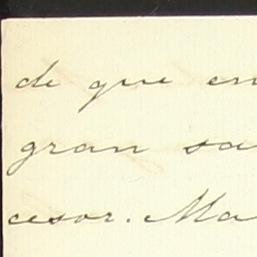 de que en
gran sa
cesor. Ma